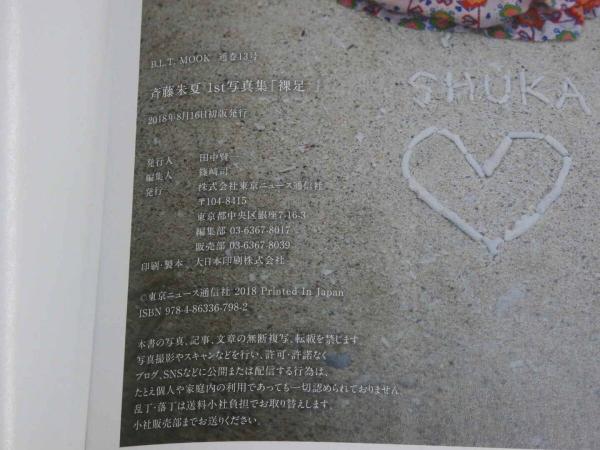 B.L.T. MOOK 通巻13号
斉藤朱夏 1st写真集「裸足」
2018年8月16日初版発行
発行人 田中賢一
編集人 篠﨑司
発行 株式会社東京ニュース通信社
〒104-8415
東京都中央区銀座7-16-3
編集部 03-6367-8017
販売部 03-6367-8039
印刷・製本 大日本印刷株式会社
©東京ニュース通信社 2018 Printed In Japan
ISBN 978-4-86336-798-2
本書の写真、記事、文章の無断複写、転載を禁じます。
写真撮影やスキャンなどを行い、許可・許諾なく
ブログ、SNSなどに公開または配信する行為は、
たとえ個人や家庭内の利用であっても一切認められておりません。
乱丁・落丁は送料小社負担でお取り替えします。
小社販売部までお送りください。
SHUKA